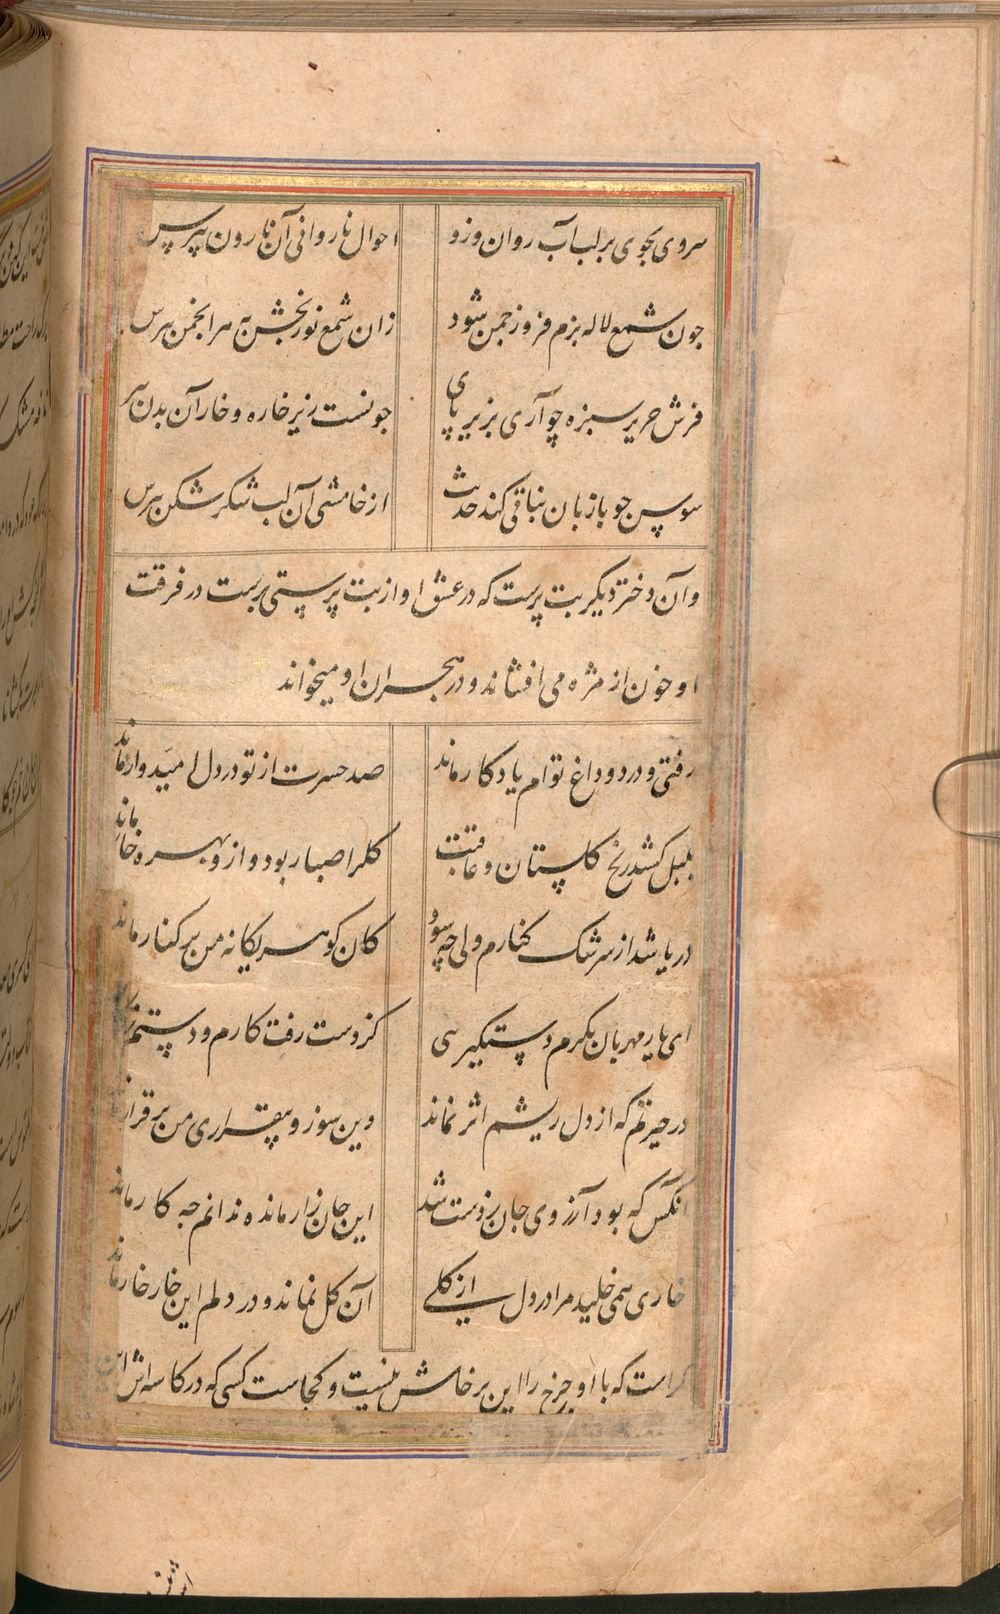 سروی بجوی برلب آب روان وزو احوال ناروانی آن نارون بپرس
جون شمع لاله بزم فروز جمن شود زان شمع نوربخش به هر انجمن بپرس
فرش حریر سبزه چو آری بزیر پای جونست زیر خاره و خار آن بدن بپر
سوسن جو با زبان نباتی کند حدیث از خامشی آن لب شکر شکن بپرس
وآن دختر دیکر بت پرست که در عشق او از بت پرستی برست در فرقت
او خون از مژه می افشاند و در هجران او میخواند
رفتی و درد و داغ توام یادکار ماند صد حسرت از تو در دل امیدوار ماند
بلبل کشد رنج کلستان و عاقبت کلرا صبا ربود و ازو بهره خار ماند
دریا شد از سرشک کنارم ولی چه سود کان کوهر یکانه من بر کنار ماند
ای یار مهربان بکرم دستکیریی کز دست رفت کارم و دستم ز
در حیرتم که از دل ریشم اثر نماند وین سوز و بیقراری من برقرار
آنکس که بود آرزوی جان ز دست شد این جان زار مانده ندانم جه کار ماند
خاری نمی خلید مرا در دل از کلی آن کل نماند و در دلم این خار خار ماند
کراست که با او چرخ را این پرخاش نیست و کجاست کسی که در کاسه اش این